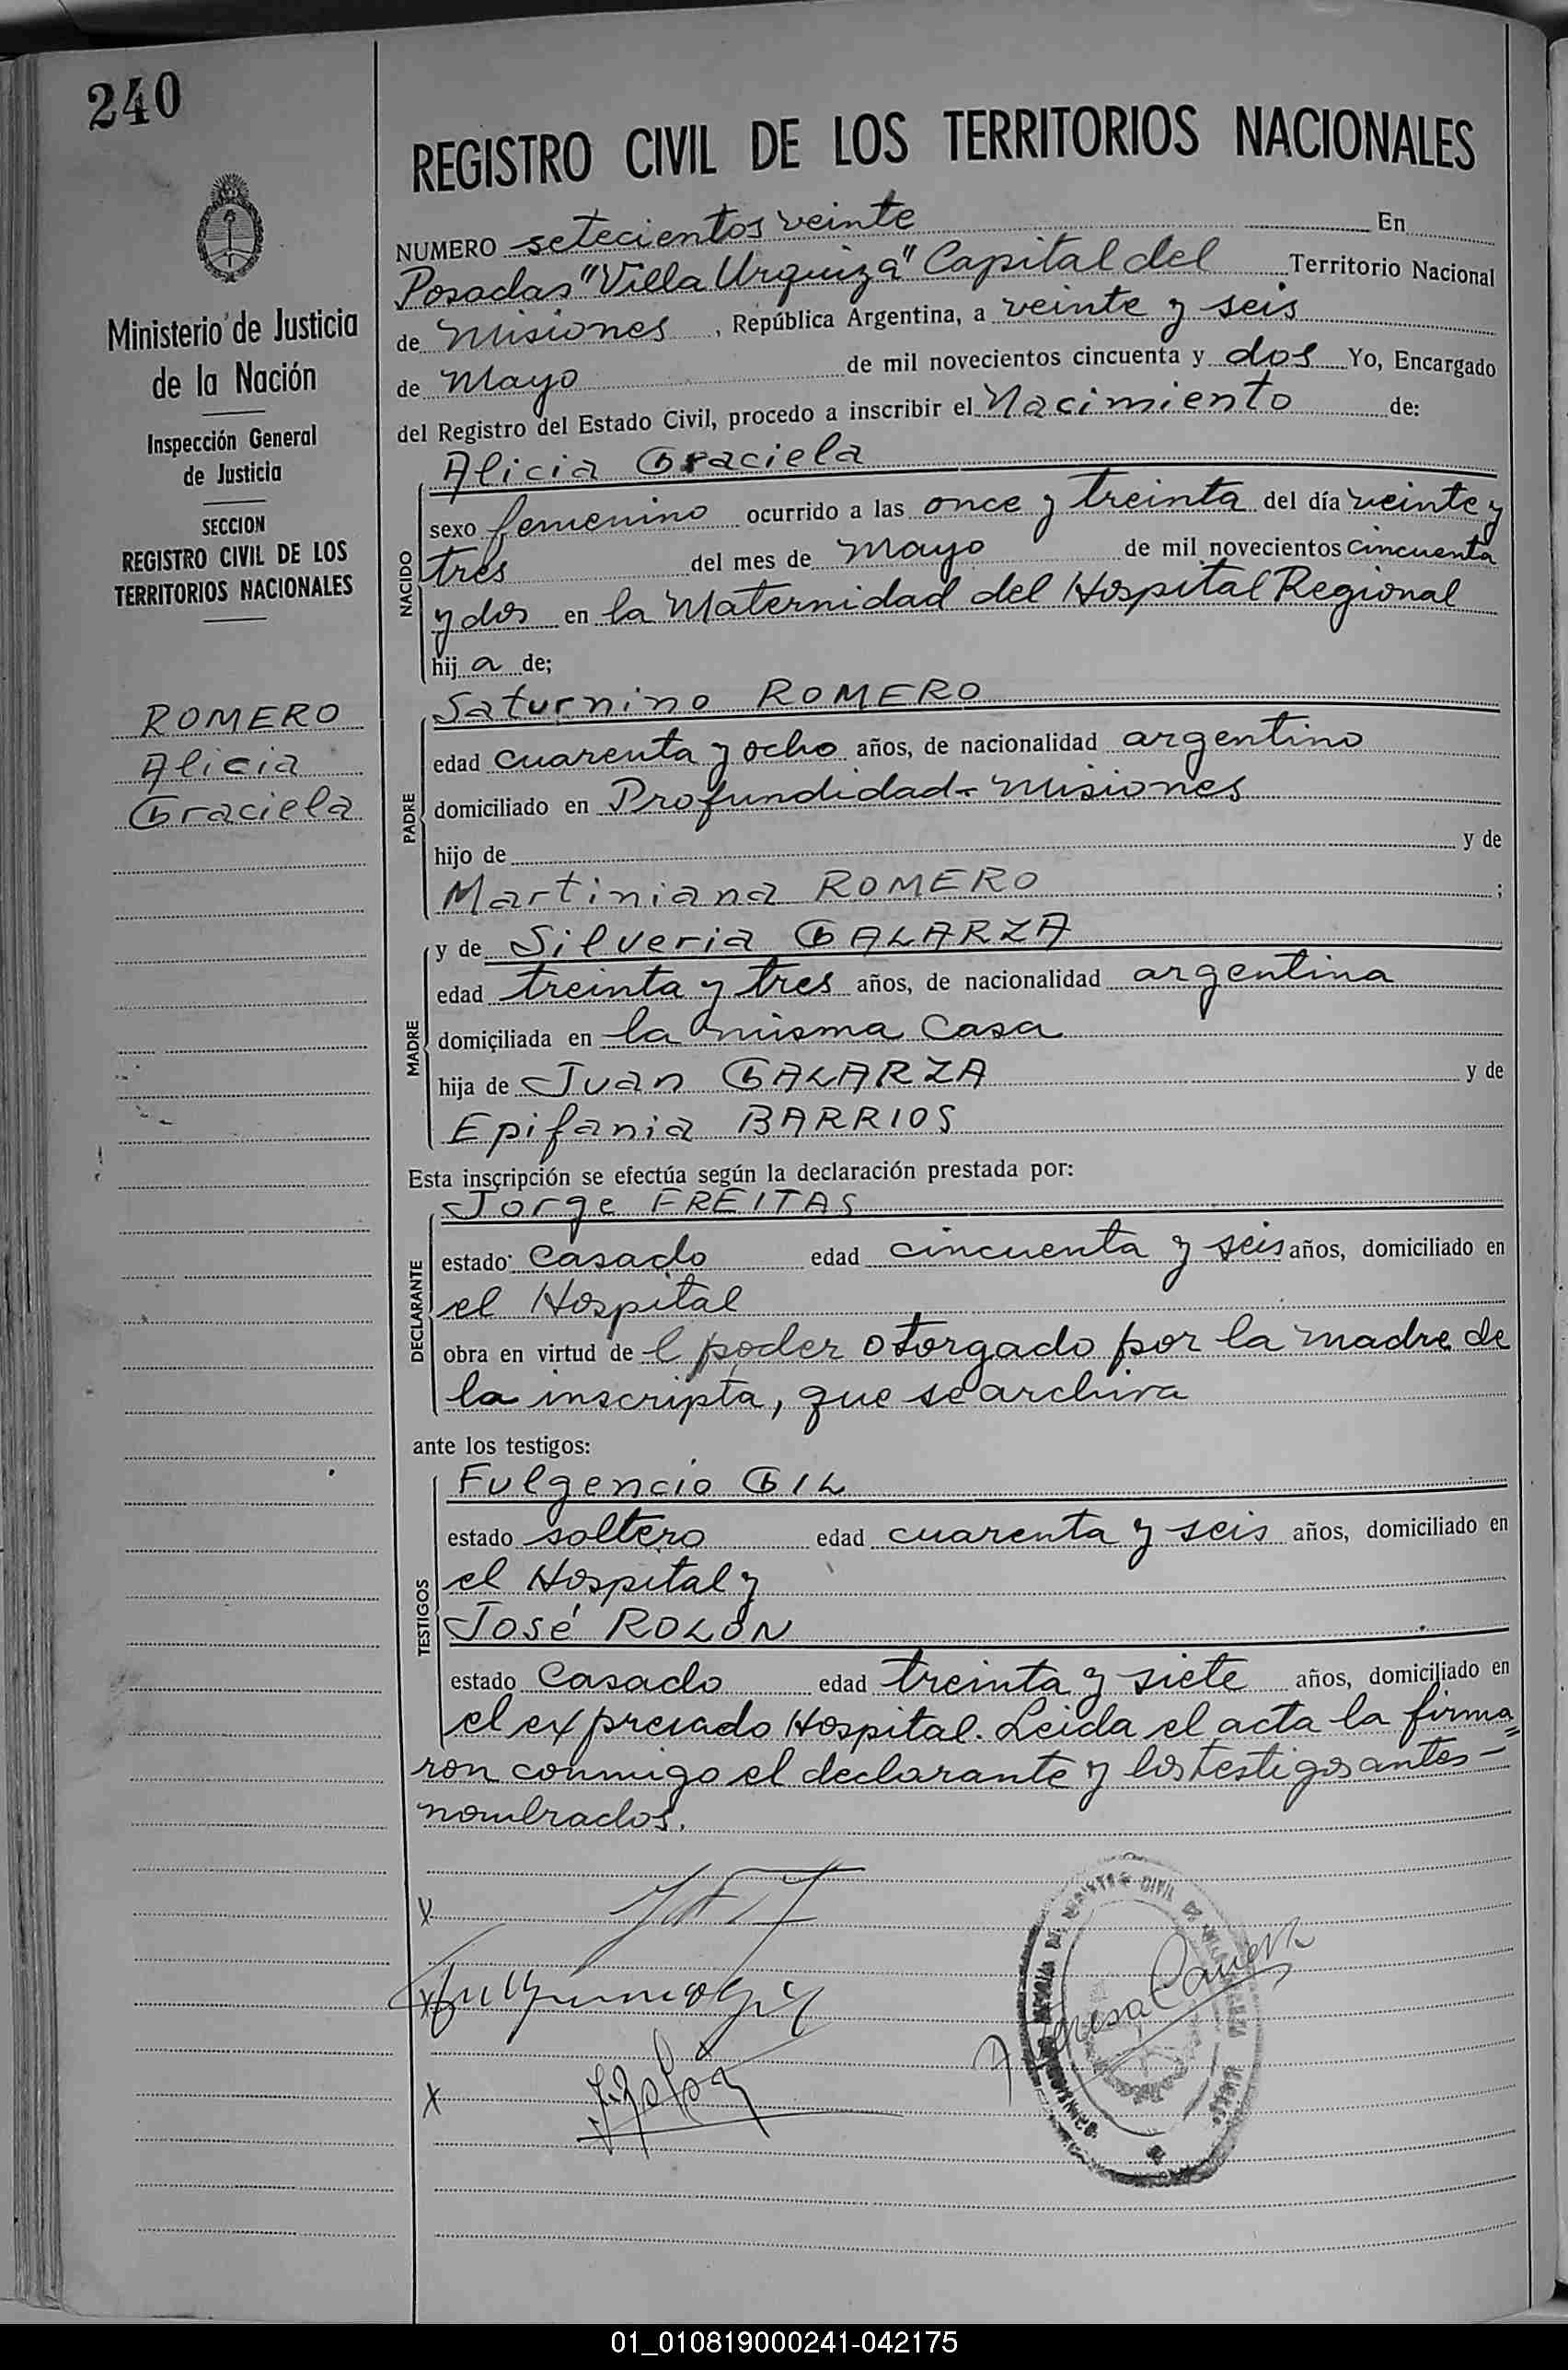 240
Ministerio de Justicia
de la Nación
Inspección General
de Justicia
SECCION
REGISTRO CIVIL DE LOS
TERRITORIOS NACIONALES
ROMERO
Alicia
Graciela
REGISTRO CIVIL DE LOS TERRITORIOS NACIONALES
NUMERO setecientos veinte En
Posadas "Villa Urquiza" Capital del Territorio Nacional
de Misiones, República Argentina, a veinte y seis
de Mayo de mil novecientos cincuenta y dos Yo, Encargado
del Registro del Estado Civil, procedo a inscribir el Nacimiento de:
Alicia Graciela
NACIDO
sexo femenino ocurrido a las once y treinta del día veinte y
tres del mes de mayo de mil novecientos cincuenta
y dos en la Maternidad del Hospital Regional
hij a de;
Saturnino ROMERO
PADRE
edad cuarenta y ocho años, de nacionalidad argentino
domiciliado en Profundidad - Misiones
hijo de y de
Martiniana ROMERO ;
y de Silveria GALARZA
MADRE
edad treinta y tres años, de nacionalidad argentina
domiciliada en la misma casa
hija de Juan GALARZA y de
Epifania BARRIOS
Esta inscripción se efectúa según la declaración prestada por:
Jorge FREITAS
DECLARANTE
estado casado edad cincuenta y seis años, domiciliado en
el Hospital
obra en virtud de l poder otorgado por la madre de
la inscripta, que se archiva
ante los testigos:
Fulgencio GIL
TESTIGOS
estado soltero edad cuarenta y seis años, domiciliado en
el Hospital y
José ROLON
estado casado edad treinta y siete años, domiciliado en
el expresado Hospital. Leida el acta la firma=
ron conmigo el declarante y los testigos antes-
nombrados.
X
X
X
01_010819000241-042175